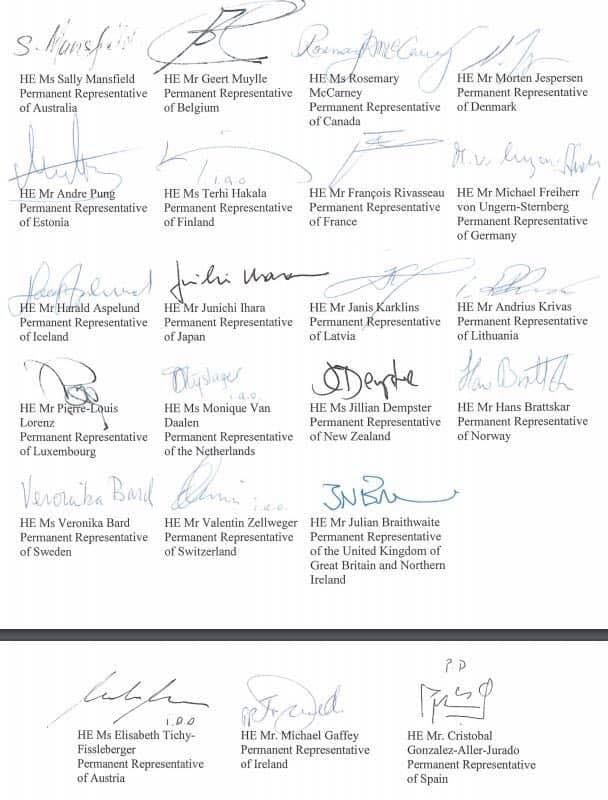 S. Mansfield
HE Ms Sally Mansfield
Permanent Representative
of Australia
HE Mr Geert Muylle
Permanent Representative
of Belgium
Rosemary McCarney
HE Ms Rosemary
McCarney
Permanent Representative
of Canada
HE Mr Morten Jespersen
Permanent Representative
of Denmark
HE Mr Andre Pung
Permanent Representative
of Estonia
i.a.o
HE Ms Terhi Hakala
Permanent Representative
of Finland
HE Mr François Rivasseau
Permanent Representative
of France
HE Mr Michael Freiherr
von Ungern-Sternberg
Permanent Representative
of Germany
HE Mr Harald Aspelund
Permanent Representative
of Iceland
Junichi Ihara
HE Mr Junichi Ihara
Permanent Representative
of Japan
HE Mr Janis Karklins
Permanent Representative
of Latvia
HE Mr Andrius Krivas
Permanent Representative
of Lithuania
HE Mr Pierre-Louis
Lorenz
Permanent Representative
of Luxembourg
i.a.o.
HE Ms Monique Van
Daalen
Permanent Representative
of the Netherlands
JDempster
HE Ms Jillian Dempster
Permanent Representative
of New Zealand
Hans Brattskar
HE Mr Hans Brattskar
Permanent Representative
of Norway
Veronika Bard
HE Ms Veronika Bard
Permanent Representative
of Sweden
HE Mr Valentin Zellweger
Permanent Representative
of Switzerland
HE Mr Julian Braithwaite
Permanent Representative
of the United Kingdom of
Great Britain and Northern
Ireland
HE Ms Elisabeth Tichy-
Fissleberger
Permanent Representative
of Austria
HE Mr. Michael Gaffey
Permanent Representative
of Ireland
P.D
HE Mr. Cristobal
Gonzalez-Aller-Jurado
Permanent Representative
of Spain